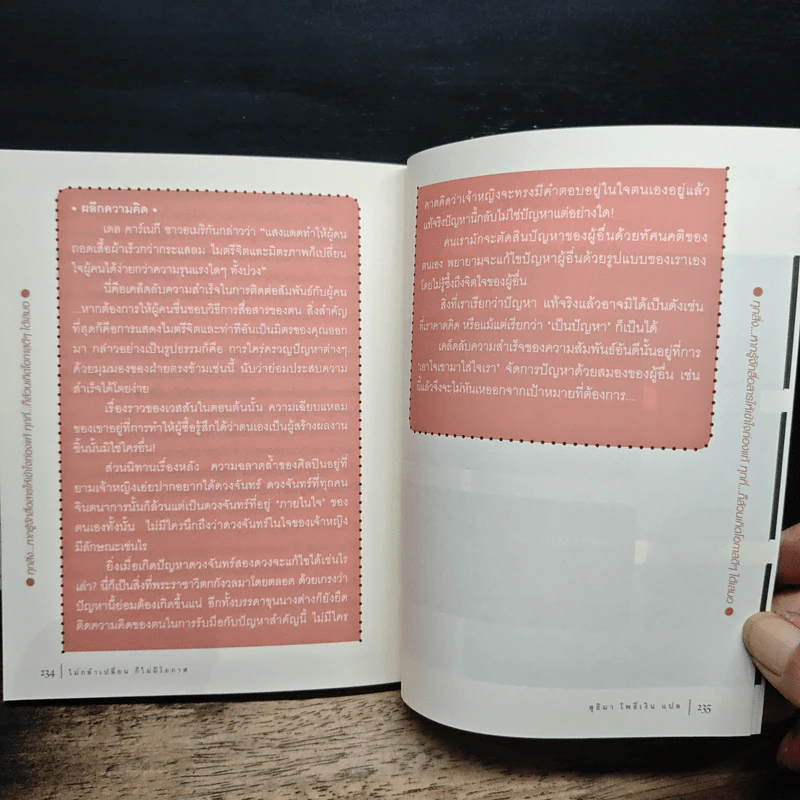 • ผลึกความคิด •
เดล คาร์เนกี ชาวอเมริกันกล่าวว่า “แสงแดดทำให้ผู้คน
ถอดเสื้อผ้าเร็วกว่ากระแสลม ไมตรีจิตและมิตรภาพก็เปลี่ยน
ใจผู้คนได้ง่ายกว่าความรุนแรงใดๆ ทั้งปวง”
นี่คือเคล็ดลับความสำเร็จในการติดต่อสัมพันธ์กับผู้คน
...หากต้องการให้ผู้คนชื่นชอบวิธีการสื่อสารของตน สิ่งสำคัญ
ที่สุดก็คือการแสดงไมตรีจิตและท่าทีอันเป็นมิตรของคุณออก
มา กล่าวอย่างเป็นรูปธรรมก็คือ การใคร่ครวญปัญหาต่างๆ
ด้วยมุมมองของฝ่ายตรงข้ามเช่นนี้ นับว่าย่อมประสบความ
สำเร็จได้โดยง่าย
เรื่องราวของเวสสันในตอนต้นนั้น ความเฉียบแหลม
ของเขาอยู่ที่การทำให้ผู้ซื้อรู้สึกได้ว่าตนเองเป็นผู้สร้างผลงาน
ชิ้นนั้นมิใช่ใครอื่น!
ส่วนนิทานเรื่องหลัง ความฉลาดล้ำของศิลปินอยู่ที่
ยามเจ้าหญิงเอ่ยปากอยากได้ดวงจันทร์ ดวงจันทร์ที่ทุกคน
จินตนาการนั้นก็ล้วนแต่เป็นดวงจันทร์ที่อยู่ “ภายในใจ” ของ
ตนเองทั้งนั้น ไม่มีใครนึกถึงว่าดวงจันทร์ในใจของเจ้าหญิง
มีลักษณะเช่นไร
ยิ่งเมื่อเกิดปัญหาดวงจันทร์สองดวงจะแก้ไขได้เช่นไร
เล่า? นี่ก็เป็นสิ่งที่พระราชาวิตกกังวลมาโดยตลอด ด้วยเกรงว่า
ปัญหานี้ย่อมต้องเกิดขึ้นแน่ อีกทั้งบรรดาขุนนางต่างก็ยังยึด
ติดความคิดของตนในการรับมือกับปัญหาสำคัญนี้ ไม่มีใคร
234 | ไม่กล้าเปลี่ยน ก็ไม่มีโอกาส
คาดคิดว่าเจ้าหญิงจะทรงมีคำตอบอยู่ในใจตนเองอยู่แล้ว
แท้จริงปัญหานี้กลับไม่ใช่ปัญหาแต่อย่างใด!
คนเรามักจะตัดสินปัญหาของผู้อื่นด้วยทัศนคติของ
ตนเอง พยายามจะแก้ไขปัญหาผู้อื่นด้วยรูปแบบของเราเอง
โดยไม่รู้ซึ้งถึงจิตใจของผู้อื่น
สิ่งที่เราเรียกว่าปัญหา แท้จริงแล้วอาจมิได้เป็นดังเช่น
ที่เราคาดคิด หรือแม้แต่เรียกว่า “เป็นปัญหา” ก็เป็นได้
เคล็ดลับความสำเร็จของความสัมพันธ์อันดีนั้นอยู่ที่การ
“เอาใจเขามาใส่ใจเรา” จัดการปัญหาด้วยสมองของผู้อื่น เช่น
นี้แล้วจึงจะไม่หันเหออกจากเป้าหมายที่ต้องการ...
สุธิมา โพธิ์เงิน แปล | 235